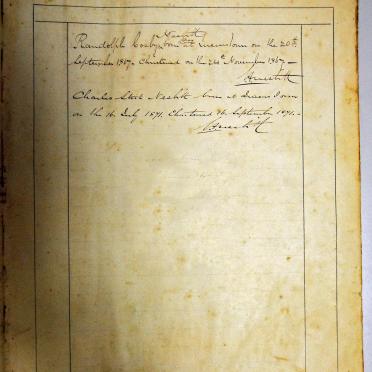 Nesbitt
Randolph Cosby born at Queenstown on the 20th
September 1867. Christened on the 24th November 1867.
ANesbitt
Charles Nesbitt born at Queenstown
on the 16 July 1871. Christened September 1871.